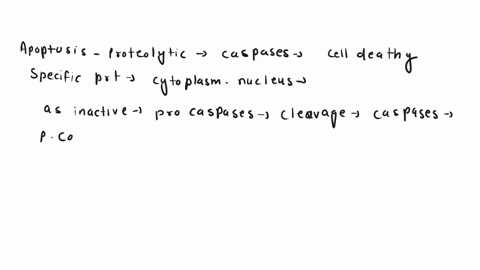 Apoptusis - Proteolytic → caspases → cell deathy
Specific prt → cytoplasm. nucleus →
as inactive → pro caspases → cleavage → caspases →
P. Co